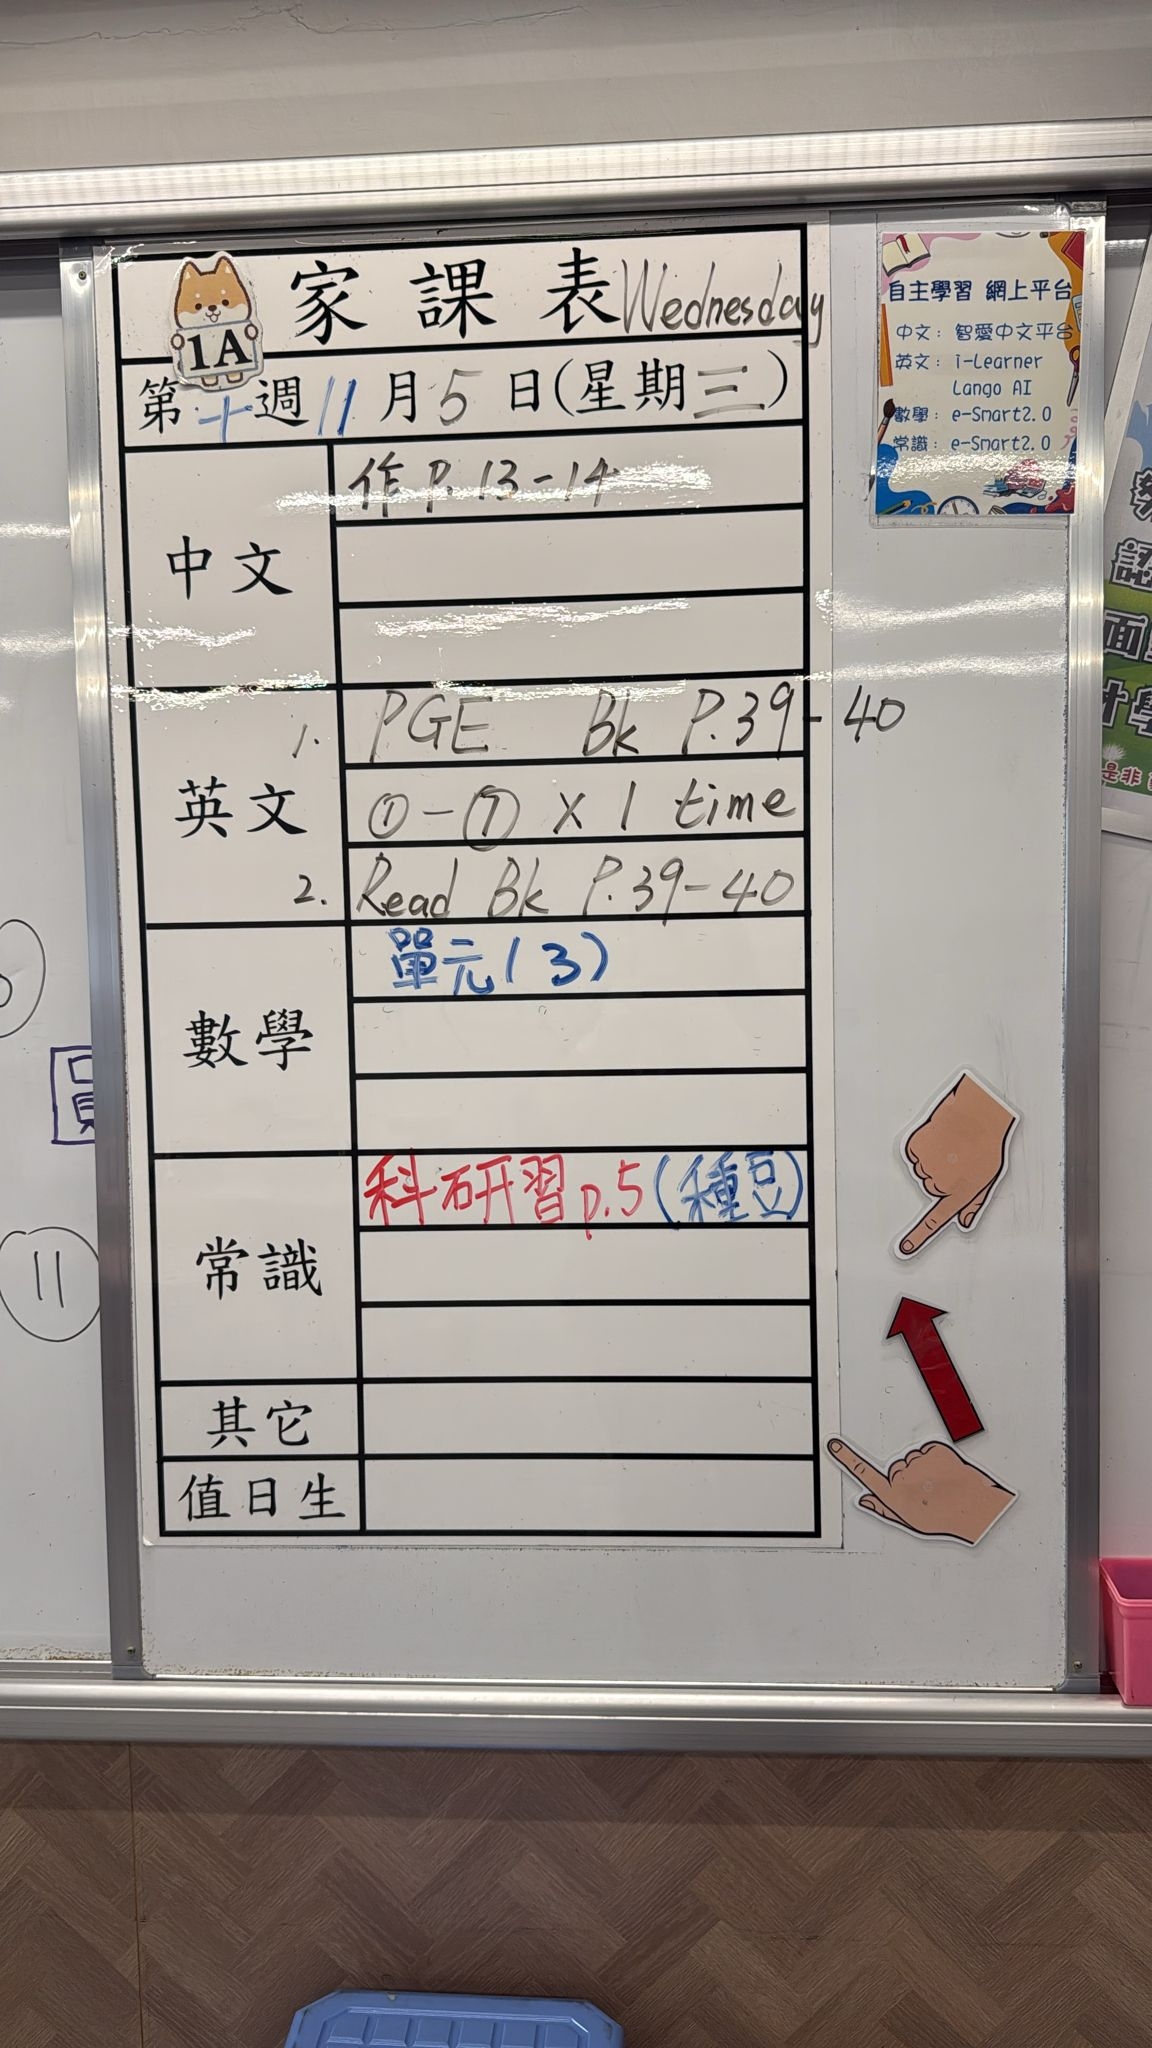 家課表 Wednesday
1A
第十週 11月5日(星期三)
中文
作 P. 13-14
英文
1. PGE Bk P.39-40
①-⑦ x 1 time
2. Read Bk P.39-40
數學
單元(3)
常識
科研習 p.5 (種豆)
其它
值日生
自主學習 網上平台
中文: 智愛中文平台
英文: i-Learner
Lango AI
數學: e-Smart2.0
常識: e-Smart2.0
11
面
是非